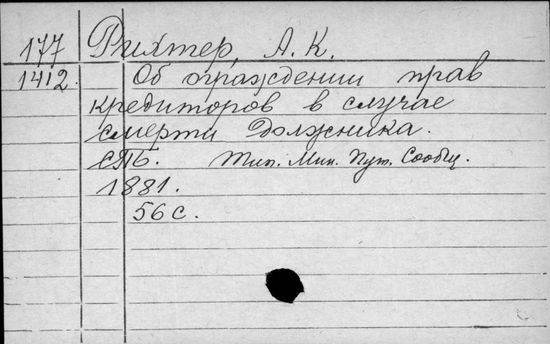 177 Рихтер, А. К.
1412. Об ограждении прав
кредиторов в случае
смерти должника.
СПб. Тип. Мин. Пут. Сообщ.
1881.
56 с.